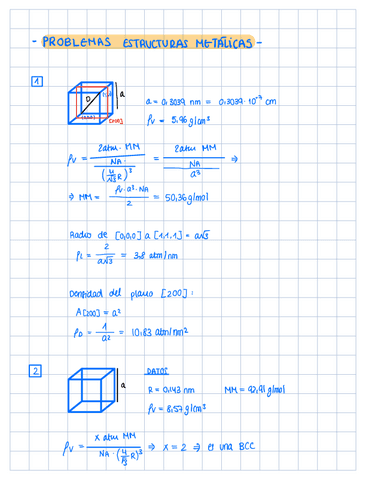 - PROBLEMAS ESTRUCTURAS METÁLICAS -
1
a
D
a = 0,3039 nm = 0,3039·10⁻⁷ cm
ρv = 5,96 g/cm³
ρv = 2 atm · MM / NA · (4/√3 R)³ = 2 atm MM / NA / a³ ⇒
⇒ MM = ρv · a³ · NA / 2 = 50,36 g/mol
Radio de [0,0,0] a [1,1,1] = a√3
ρL = 2 / a√3 = 3,8 atm/nm
Densidad del plano [200] :
A[200] = a²
ρD = 1 / a² = 10,83 atm/nm²
2
a
DATOS
R = 0,143 nm MM = 92,91 g/mol
ρv = 8,57 g/cm³
ρv = X atm MM / NA · (4/√3 R)³ ⇒ X = 2 ⇒ es una BCC